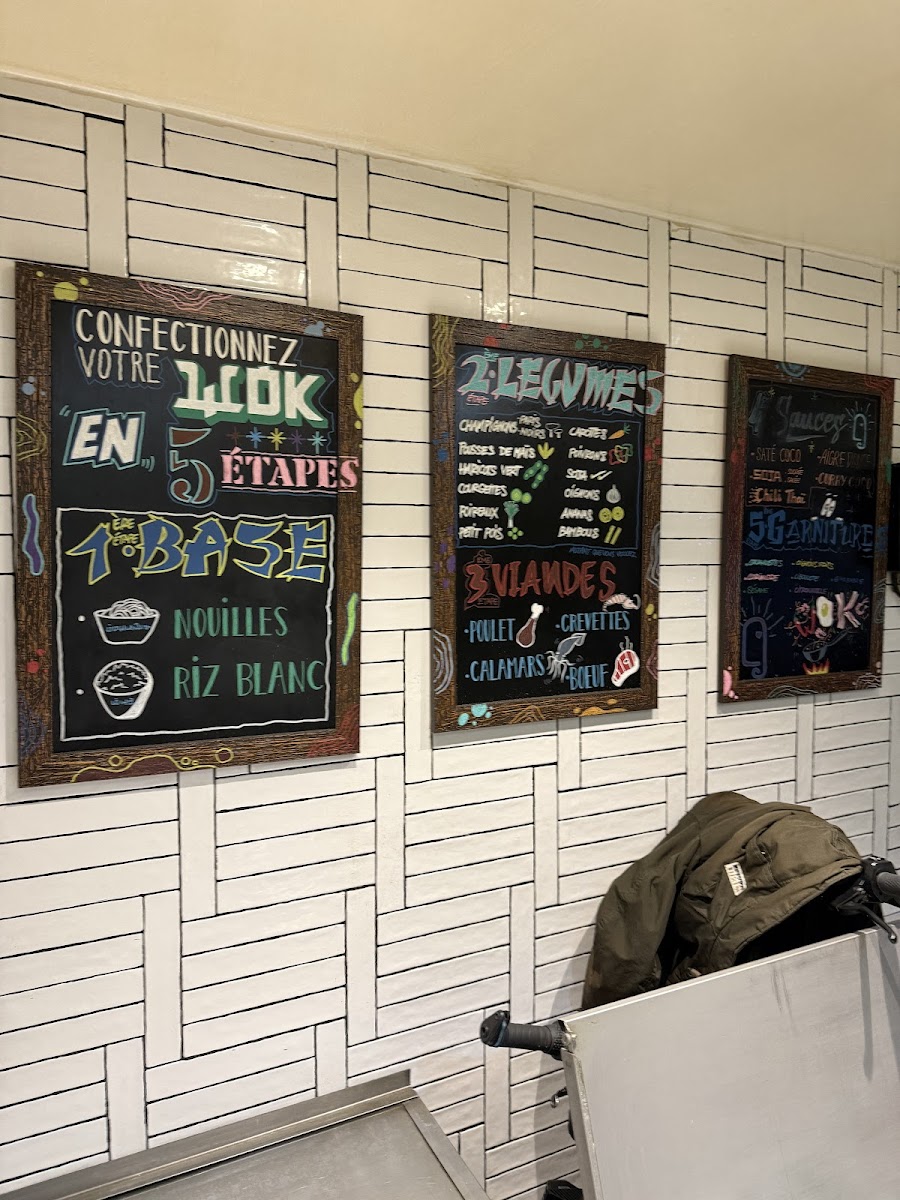 CONFECTIONNEZ
VOTRE WOK
"EN" 5 ÉTAPES
1ÈRE ÉTAPE BASE
• NOUILLES
• RIZ BLANC
2ÈME ÉTAPE LEGUMES
CHAMPIGNONS PARIS NOIRS
POUSSES DE MAÏS
HARICOTS VERT
COURGETTES
POIREAUX
PETIT POIS
CAROTTES
POIVRONS
SOJA
OIGNONS
ANANAS
BAMBOUS
3ÈME ÉTAPE VIANDES
•POULET •CREVETTES
•CALAMARS •BOEUF
4 Sauces
•SATÉ COCO •AIGRE DOUCE
•SOJA SUCRÉ SALÉ •CURRY COCO
•Chili Thaï
5 GARNITURES
WOK